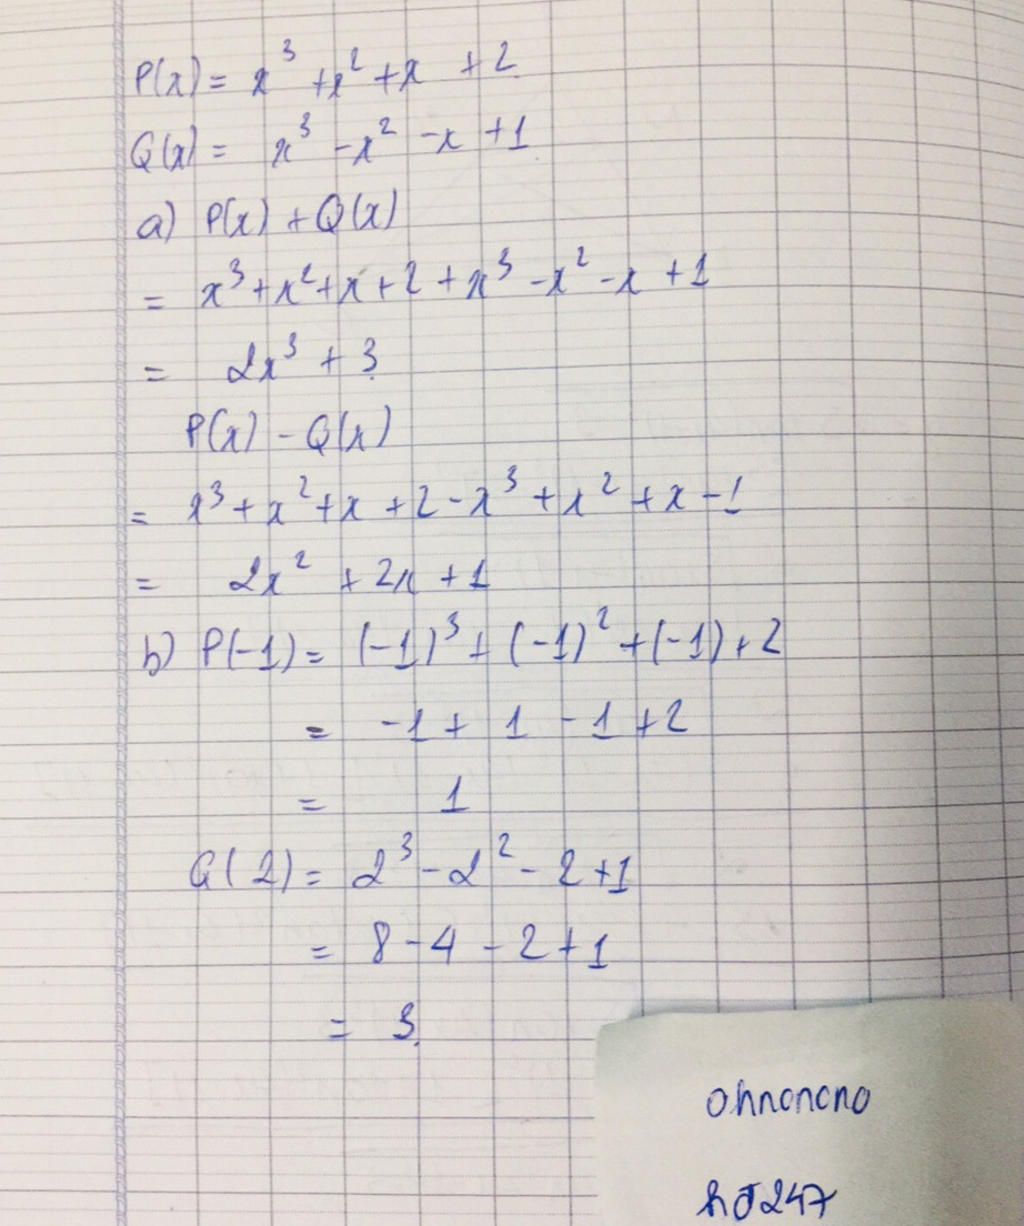 P(x) = x³ + x² + x + 2
Q(x) = x³ - x² - x + 1
a) P(x) + Q(x)
= x³ + x² + x + 2 + x³ - x² - x + 1
= 2x³ + 3
P(x) - Q(x)
= x³ + x² + x + 2 - x³ + x² + x - 1
= 2x² + 2x + 1
b) P(-1) = (-1)³ + (-1)² + (-1) + 2
= -1 + 1 - 1 + 2
= 1
Q(2) = 2³ - 2² - 2 + 1
= 8 - 4 - 2 + 1
= 3
ohnonono
hđ247